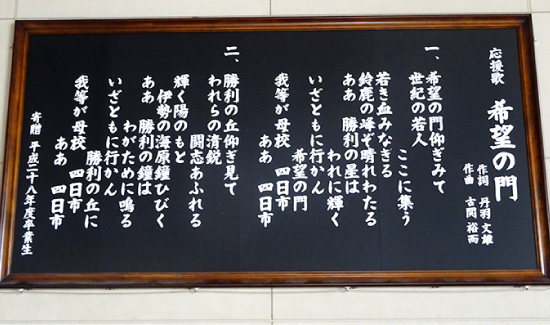 応援歌 希望の門
作詞 丹羽文雄
作曲 古関裕而
一、希望の門仰ぎみて
世紀の若人 ここに集う
若き血みなぎる
鈴鹿の峰ぞ晴れわたる
ああ 勝利の星は
われに輝く
いざともに行かん
希望の門
我等が母校 四日市
ああ 四日市
二、勝利の丘仰ぎ見て
われらの清鋭
闘志あふれる
輝く陽のもと
伊勢の海原鐘ひびく
ああ 勝利の鐘は
わがために鳴る
いざともに行かん
勝利の丘に
我等が母校 四日市
ああ 四日市
寄贈 平成二十八年度卒業生